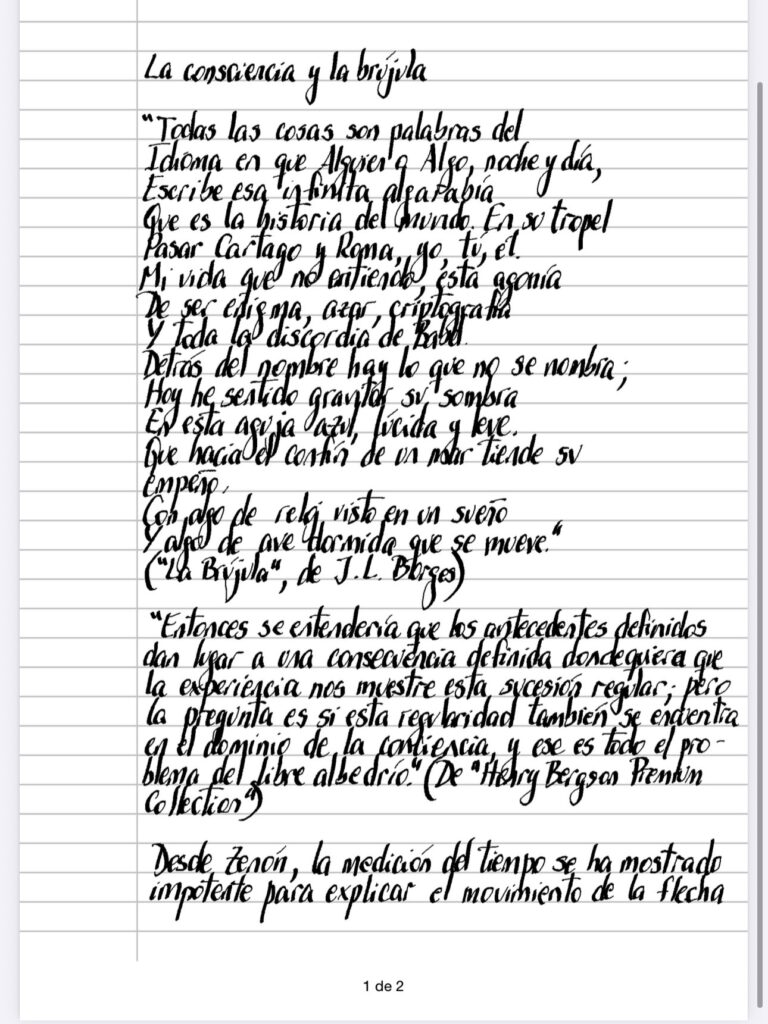 La consciencia y la brújula
"Todas las cosas son palabras del
Idioma en que Alguien o Algo, noche y día,
Escribe esa infinita algarabía
Que es la historia del mundo. En su tropel
Pasar Cartago y Roma, yo, tú, él.
Mi vida que no entiendo, esta agonía
De ser enigma, azar, criptografía
Y toda la discordia de Babel.
Detrás del nombre hay lo que no se nombra;
Hoy he sentido gravitar su sombra
En esta aguja azul, lúcida y leve.
Que hacia el confín de un mar tiende su
empeño,
Con algo de reloj visto en un sueño
Y algo de ave dormida que se mueve."
("La Brújula", de J.L. Borges)
"Entonces se entendería que los antecedentes definidos
dan lugar a una consecuencia definida dondequiera que
la experiencia nos muestre esta sucesión regular; pero
la pregunta es si esta regularidad también se encuentra
en el dominio de la conciencia, y ese es todo el pro-
blema del libre albedrío." (De "Henry Bergson Premium
Collection")
Desde Zenón, la medición del tiempo se ha mostrado
impotente para explicar el movimiento de la flecha
1 de 2